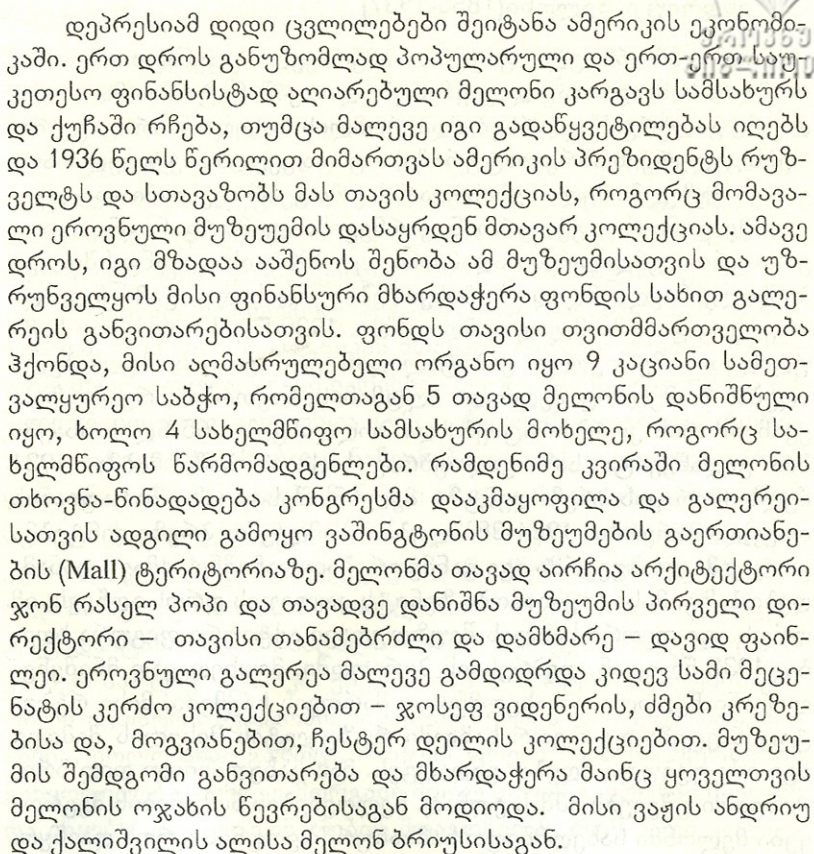 დეპრესიამ დიდი ცვლილებები შეიტანა ამერიკის ეკონომი-
კაში. ერთ დროს განუზომლად პოპულარული და ერთ-ერთ საუ-
კეთესო ფინანსისტად აღიარებული მელონი კარგავს სამსახურს
და ქუჩაში რჩება, თუმცა მალევე იგი გადაწყვეტილებას იღებს
და 1936 წელს წერილით მიმართვას ამერიკის პრეზიდენტს რუზ-
ველტს და სთავაზობს მას თავის კოლექციას, როგორც მომავა-
ლი ეროვნული მუზეუემის დასაყრდენ მთავარ კოლექციას. ამავე
დროს, იგი მზადაა ააშენოს შენობა ამ მუზეუმისათვის და უზ-
რუნველყოს მისი ფინანსური მხარდაჭერა ფონდის სახით გალე-
რეის განვითარებისათვის. ფონდს თავისი თვითმმართველობა
ჰქონდა, მისი აღმასრულებელი ორგანო იყო 9 კაციანი სამეთ-
ვალყურეო საბჭო, რომელთაგან 5 თავად მელონის დანიშნული
იყო, ხოლო 4 სახელმწიფო სამსახურის მოხელე, როგორც სა-
ხელმწიფოს წარმომადგენლები. რამდენიმე კვირაში მელონის
თხოვნა-წინადადება კონგრესმა დააკმაყოფილა და გალერეი-
სათვის ადგილი გამოყო ვაშინგტონის მუზეუმების გაერთიანე-
ბის (Mall) ტერიტორიაზე. მელონმა თავად აირჩია არქიტექტორი
ჯონ რასელ პოპი და თავადვე დანიშნა მუზეუმის პირველი დი-
რექტორი – თავისი თანამებრძლი და დამხმარე – დავიდ ფაინ-
ლეი. ეროვნული გალერეა მალევე გამდიდრდა კიდევ სამი მეცე-
ნატის კერძო კოლექციებით – ჯოსეფ ვიდენერის, ძმები კრეზე-
ბისა და, მოგვიანებით, ჩესტერ დეილის კოლექციებით. მუზეუ-
მის შემდგომი განვითარება და მხარდაჭერა მაინც ყოველთვის
მელონის ოჯახის წევრებისაგან მოდიოდა. მისი ვაჟის ანდრიუ
და ქალიშვილის ალისა მელონ ბრიუსისაგან.